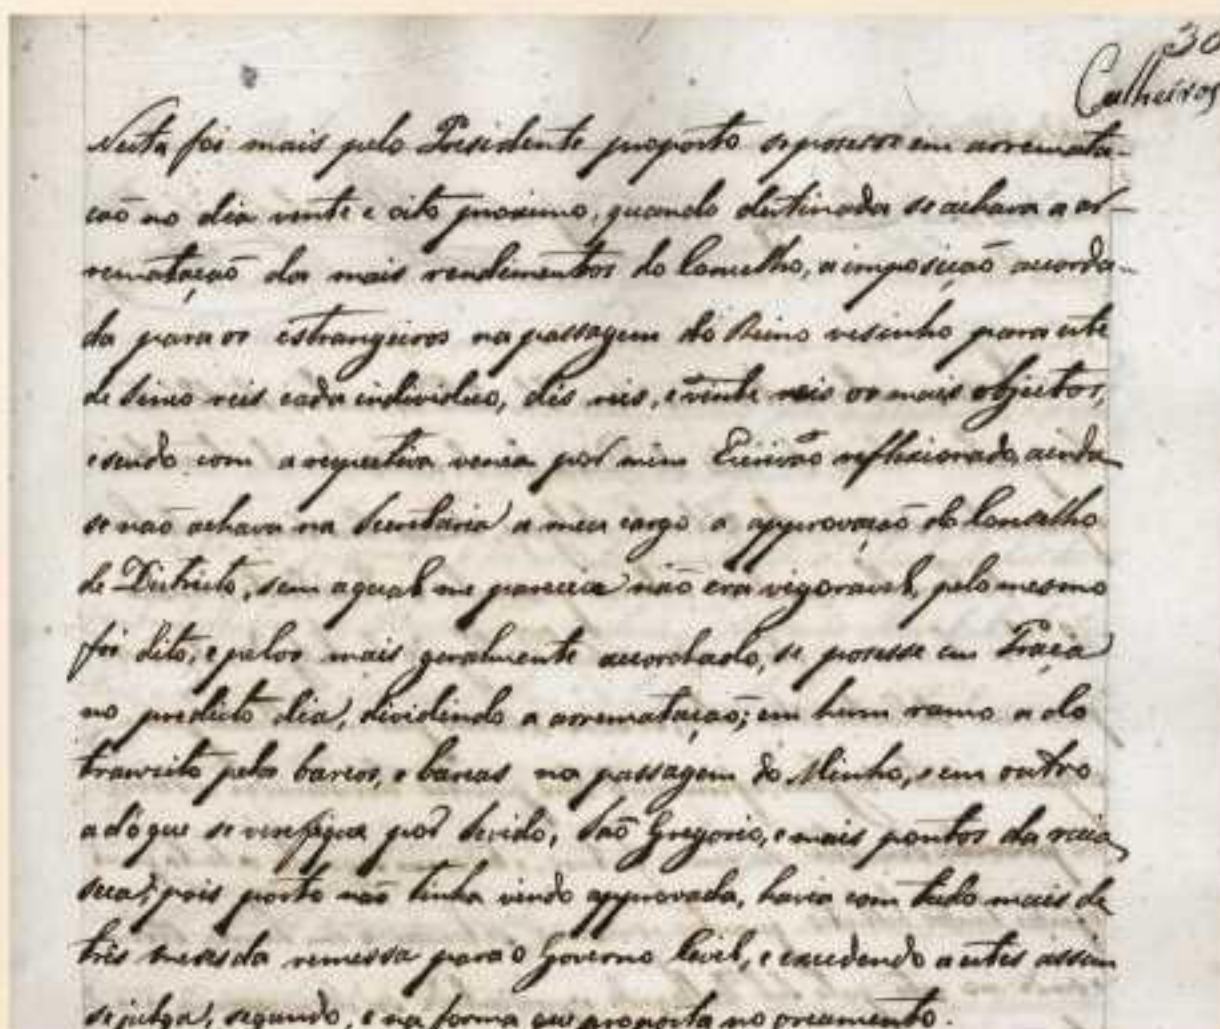 30
Calheiros
Nesta foi mais pelo Presidente proposto se posesse em arremata-
ção no dia vinte e oito proximo, quando destinada se achava a ar-
rematação da mais rendimentos do Concelho, a imposição acorda-
da para os estrangeiros na passagem do Reino vesinho para este
de sinco reis cada individuo, dés reis, e vinte reis os mais objectos,
e sendo com a respectiva venia por mim Escrivão reflexionado, ainda
se não achava na Secretaria a meu cargo a approvação do Conselho
de Districto, sem a qual me parecia não era vigoravel, pelo mesmo
foi dito, e pelos mais geralmente accordado, se posesse em Praça
no predicto dia, dividindo a arrematação; em hum ramo a do
transito pelos barcos, e barcas na passagem do Minho, e em outro
a do que se verefique por São Gregorio, e mais pontos da raia
seca; pois posto não tinha vindo approvada, havia com tudo mais de
três meses da remessa para o Governo Civil, e excedendo a estes assim
se julga, segundo, e na forma que proposta no orcamento.